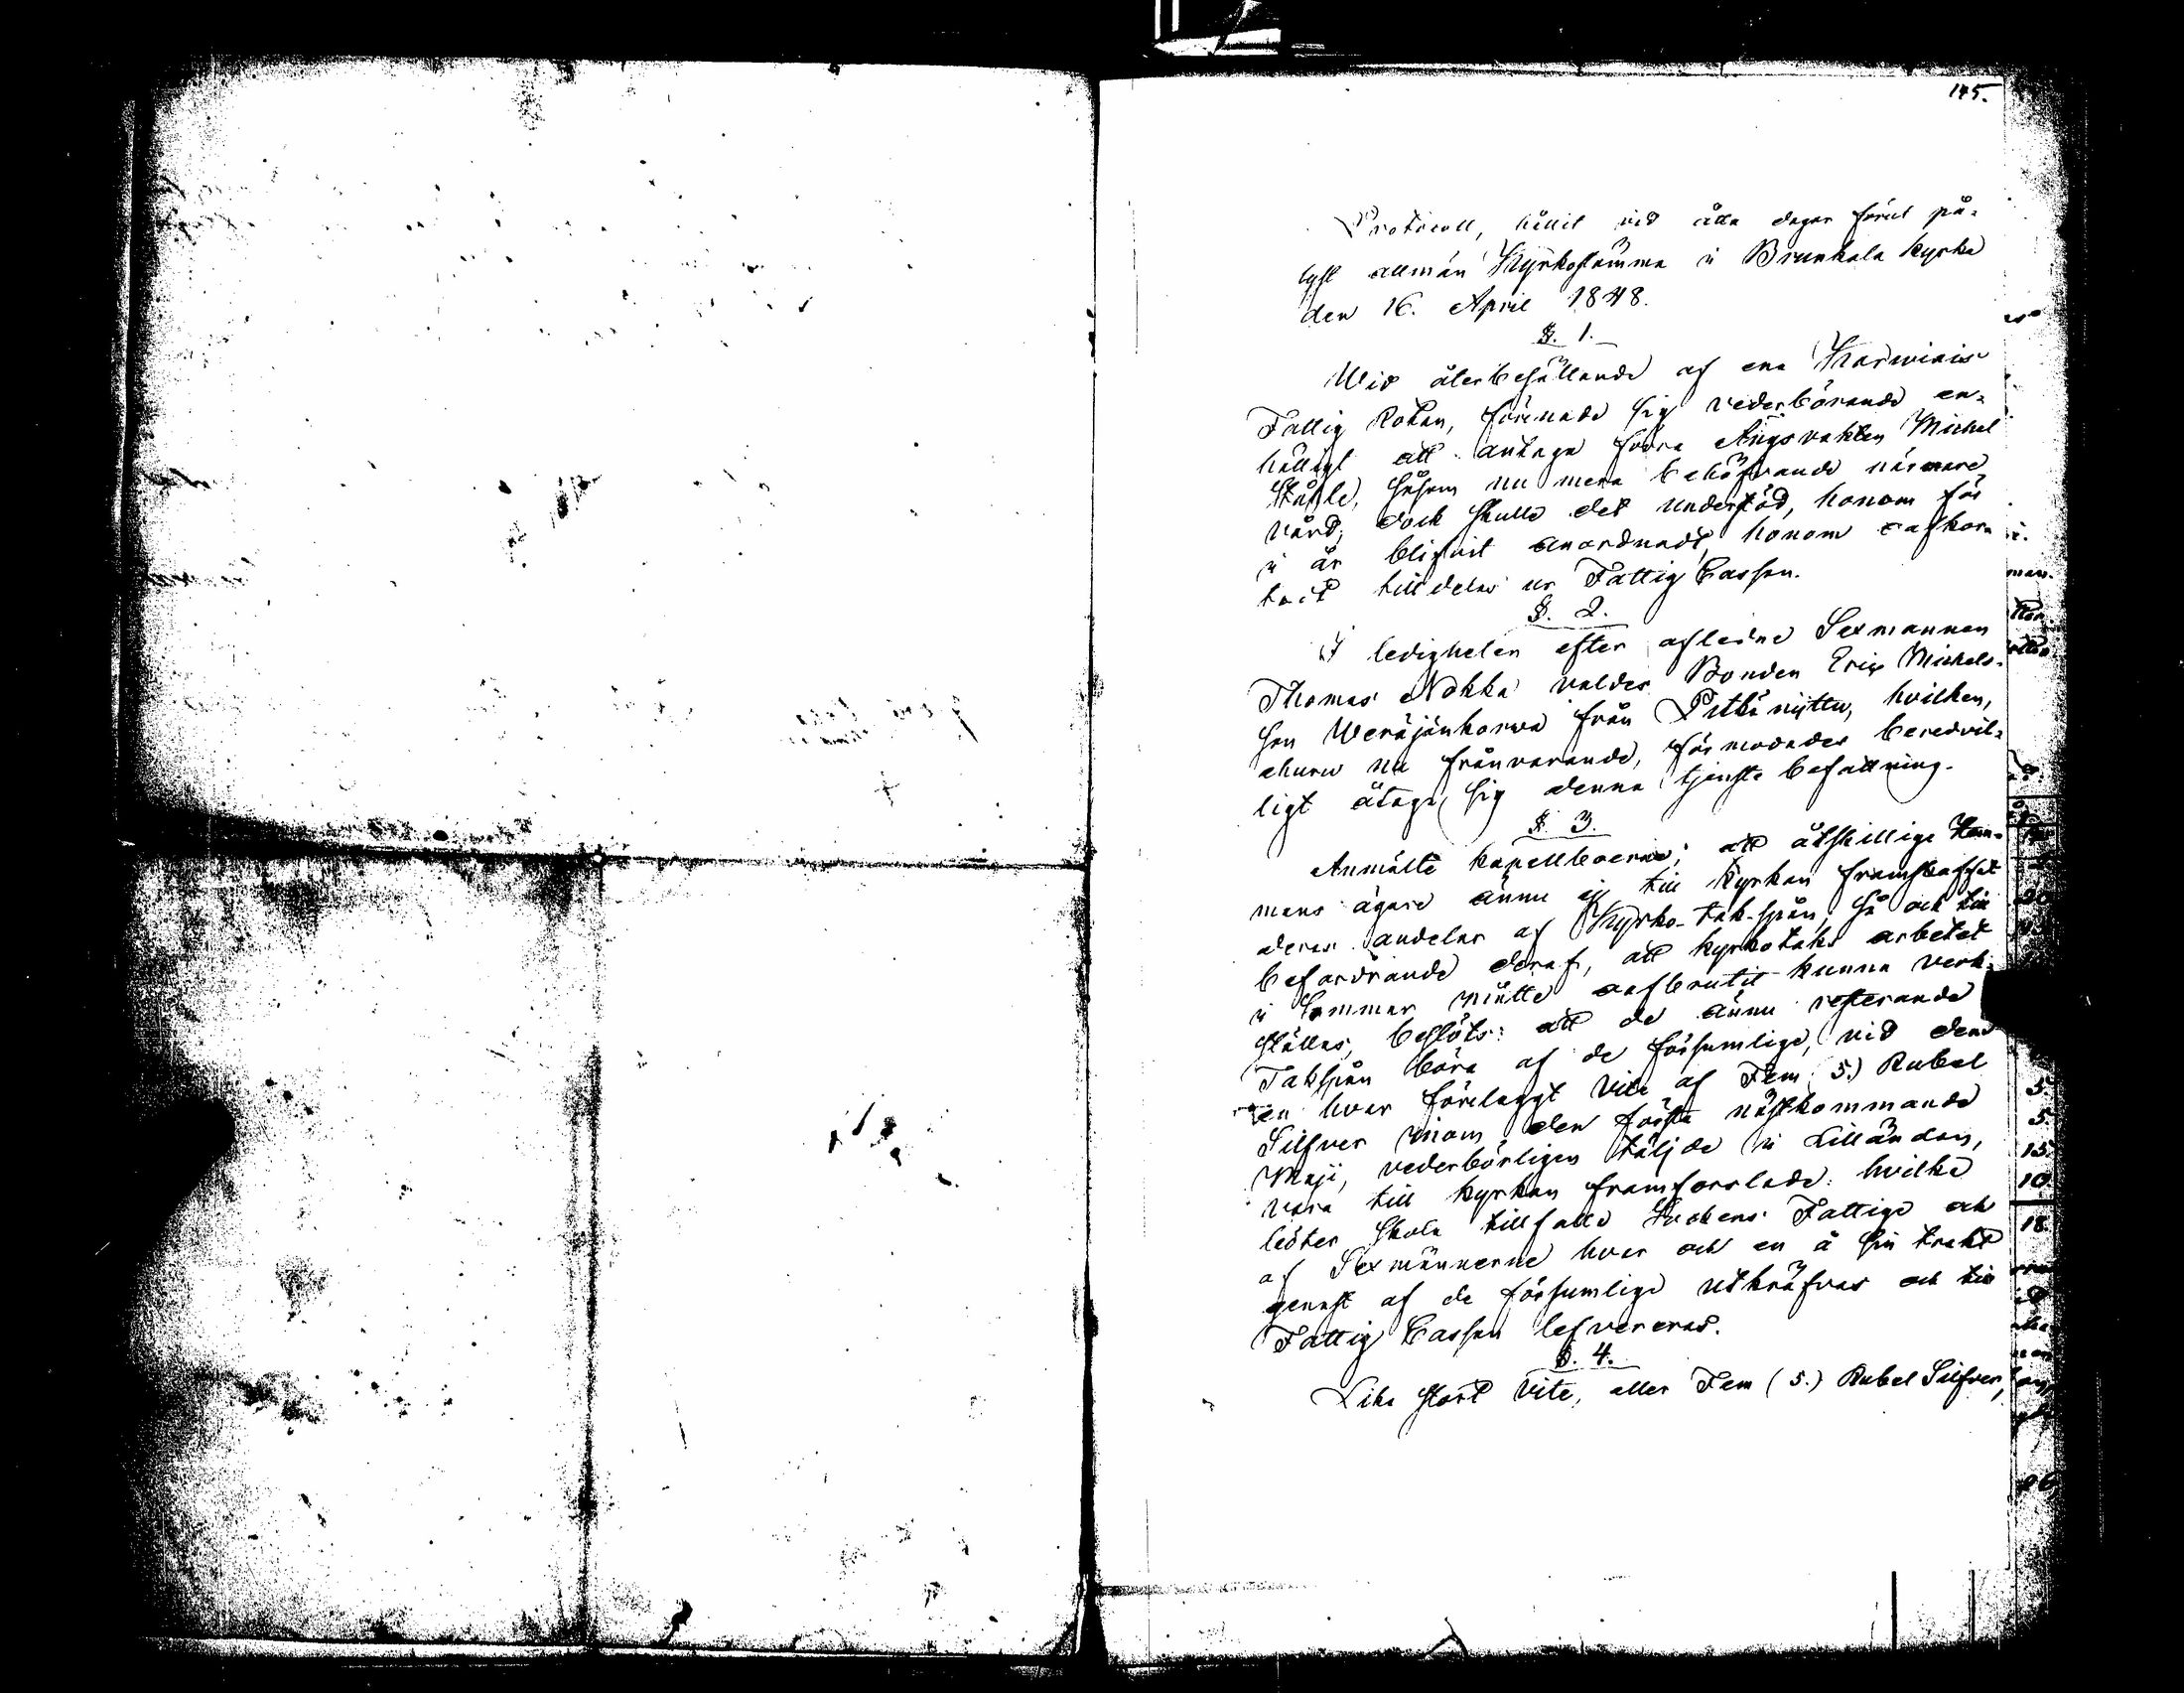 145.
Protocoll, hållit vid åtta dagar förut på-
lyst allmän Kyrkostämma i Brunkala Kyrka
den 16. April 1848.
§. 1.
Wid återbesättande af ena
Fattig Rotan, förenade sig vederbörande en-
hälligt att antaga förra Ängsvakten Michel
Ståhle, såsom nu mera behöfvande närmare
vård; dock skulle det understöd, honom för
i år blifvit anordnadt, honom oafkor-
tadt tilldelas ur Fattig Cassan.
§. 2.
I ledigheten efter aflidne Sexmannen
Thomas Nokka valdes Bonden Eric Michels-
son Weräjänkorwa från hvilken,
ehuru nu frånvarande, förmodades beredvil-
ligt åtaga sig denna tjenste befattning.
§. 3.
Anmälte kapellboerne; att åtskillige Hem-
mans ägare ännu ej till Kyrkan framskaffat
deras andelar af Kyrko-tak-spån; så och till
befordrande deraf, att kyrkotaks arbetet
i Sommar måtte oafbrutit kunna verk-
ställas, beslöts: att de ännu resterande
Takspån böra af de försumlige, vid den
en hvar förelaggt Vite af Fem (5.) Rubel
Silfver inom den första nästkommande
Maji, vederbörligen täljde i Lilländan,
vara till kyrkan framforslade: hvilka
böter skola tillfalla Sockens Fattige och
af Sexmännerne hvar och en å sin trakt
genast af de försumlige utkräfvas och till
Fattig Cassan lefvereras.
§. 4.
Lika stort Vite, eller Fem (5.) Rubel Silfver,